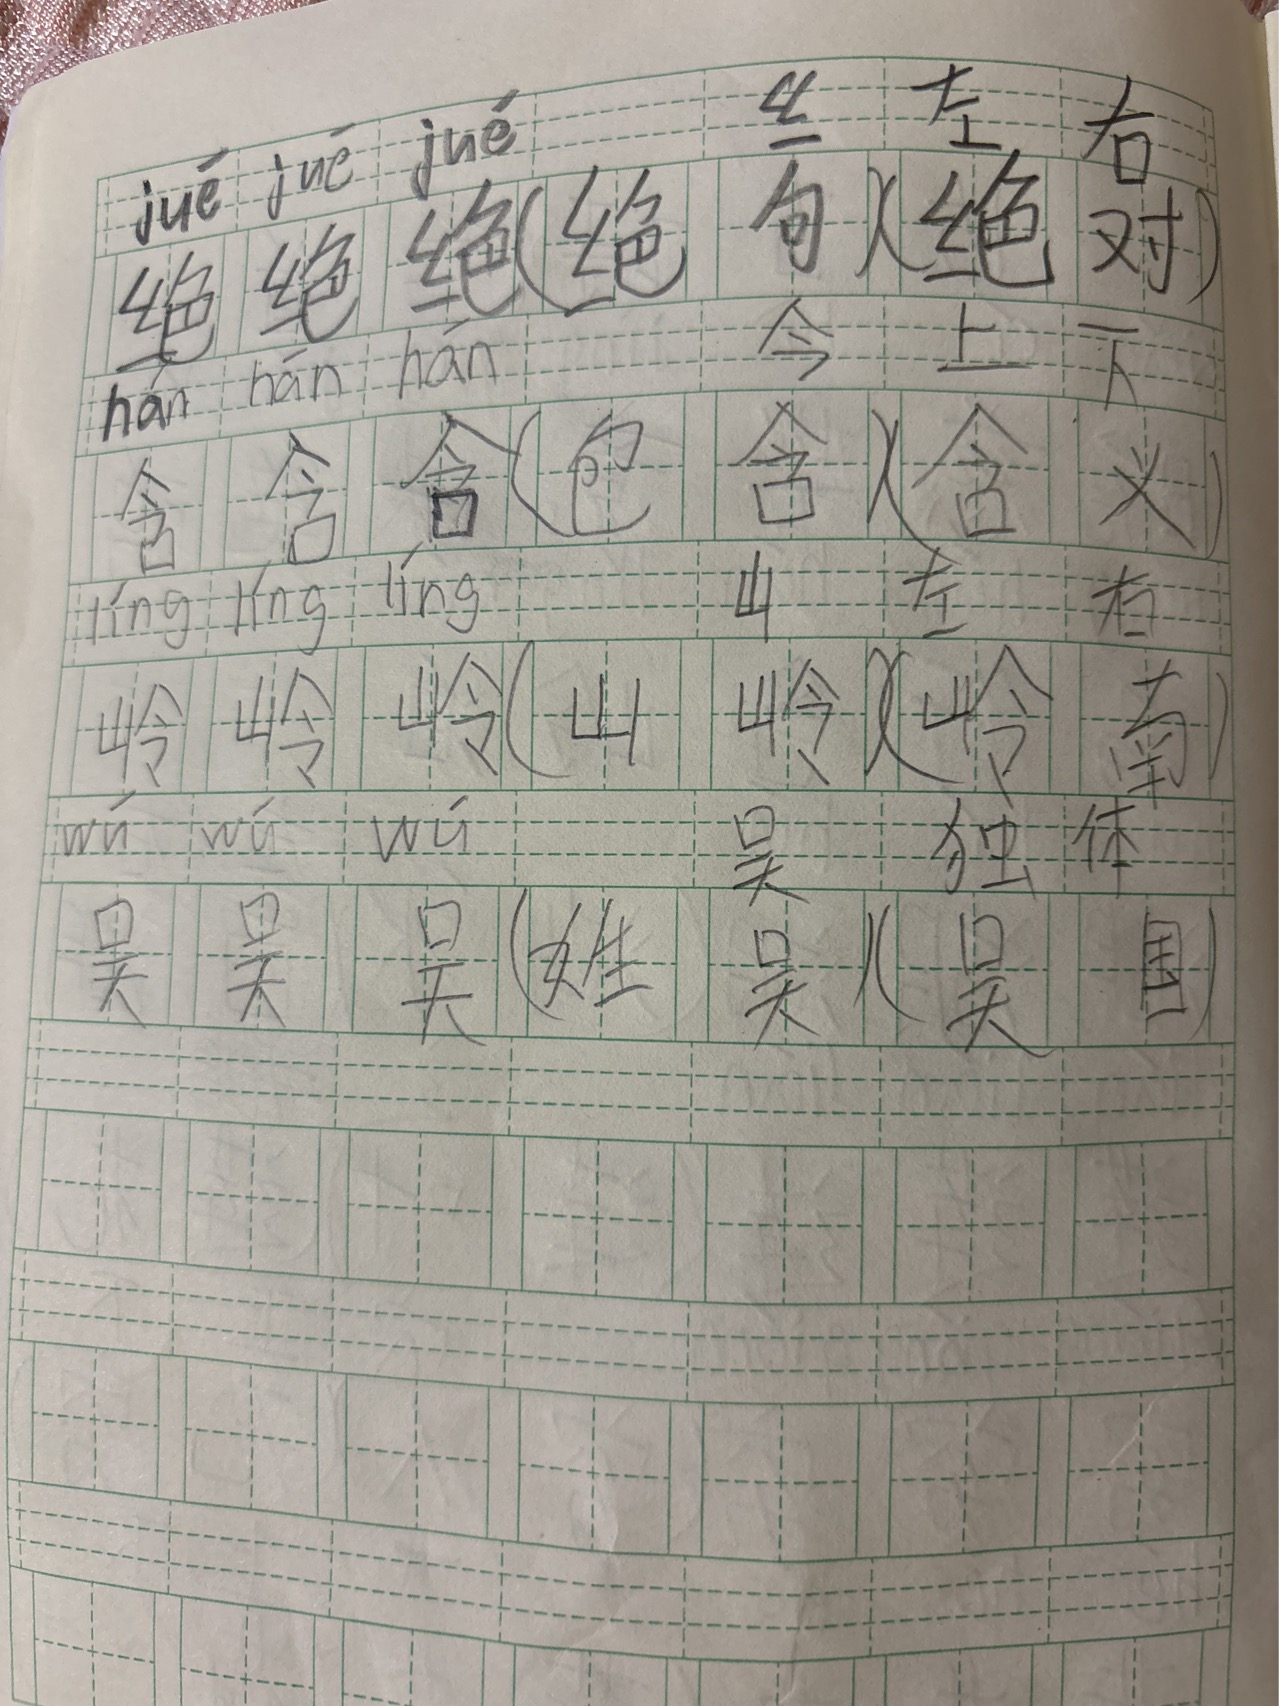 jué jué jué 纟 左 右
绝 绝 绝 (绝 句) (绝 对)
hán hán hán 今 上 下
含 含 含 (包 含) (含 义)
líng líng líng 山 左 右
岭 岭 岭 (山 岭) (岭 南)
wú wú wú 吴 独 体
吴 吴 吴 (姓 吴) (吴 国)